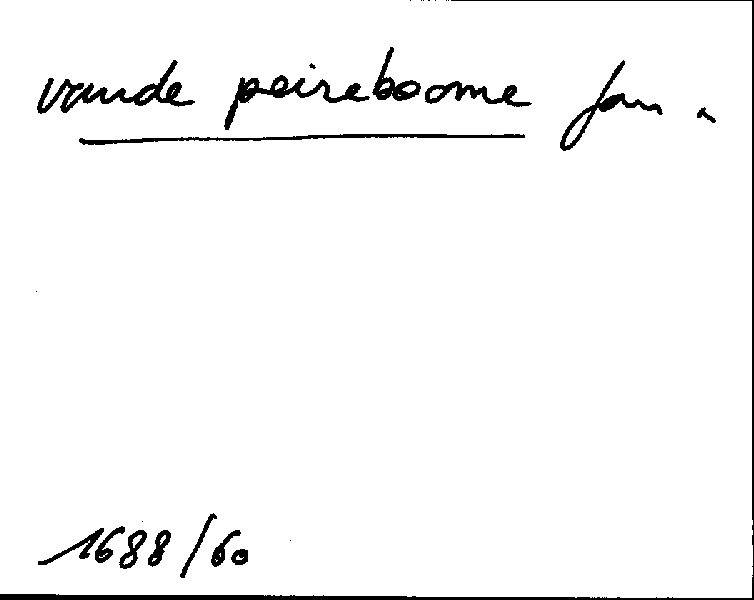 vande peireboome Jan
1688/60